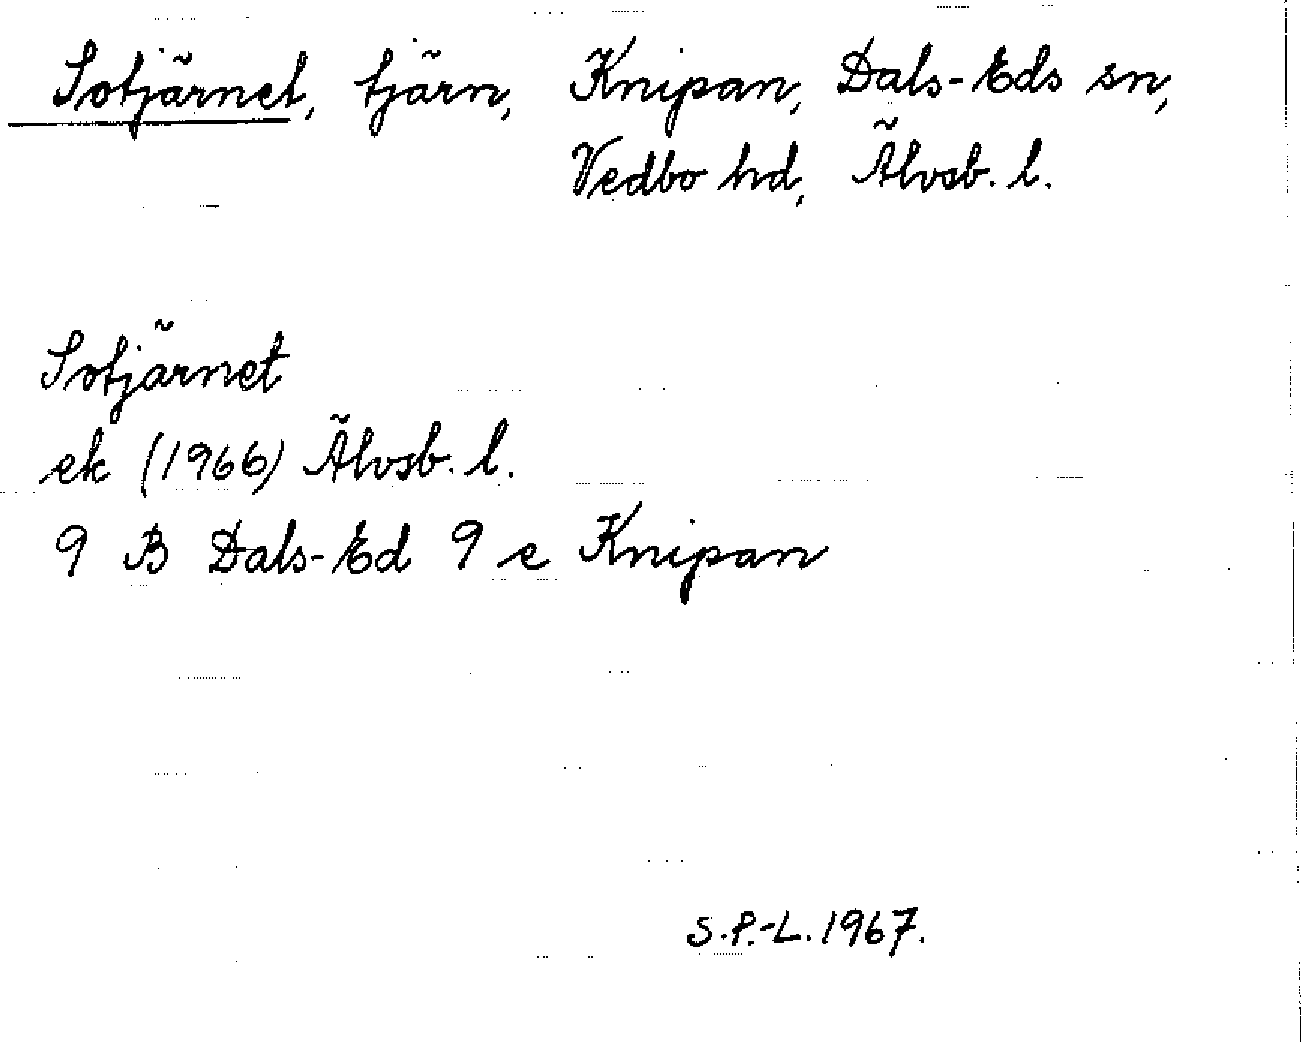 Sotjärnet, tjärn, Knipan, Dals-Eds sn,
Vedbo hd, Älvsb. l.
Sotjärnet
ek (1966) Älvsb. l.
9 B Dals-Ed 9 e Knipan
S.P.-L. 1967.